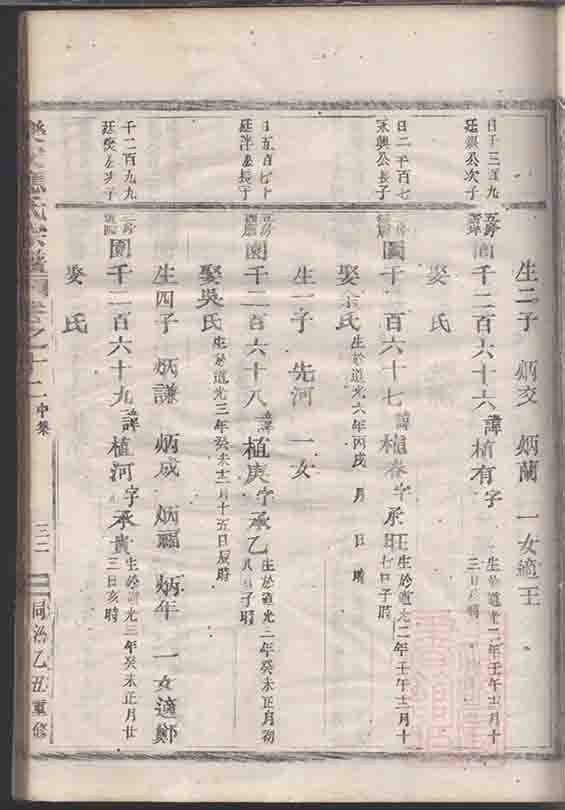 生二子 炳交 炳蘭 一女適王
日千三百九
廷興公次子
五房
園千二百六十六諱植有字
生於道光二年壬午十二月十
三日 時
娶 氏
日二千百七
永興公長子
園千二百六十七諱植春字承旺
生於道光二年壬午十二月十
七日子時
娶 氏
生於道光六年丙戌 月 日 時
生一子 先河 一女
日五百七十
廷泮公長子
五房
園千二百六十八諱植庚字承乙
生於道光三年癸未正月初
八日子時
娶吳氏
生於道光三年癸未十二月十五日辰時
生四子 炳謙 炳成 炳福 炳年 一女適鄭
千二百九九
廷奕公次子
三房
園千二百六十九諱植河字承貴
生於道光三年癸未正月廿
三日亥時
娶 氏
應氏宗譜 卷之十二 中集 三二 同治乙丑重修